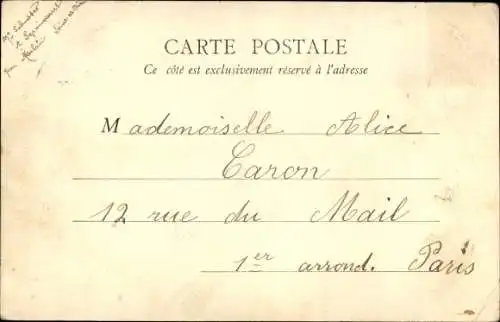 CARTE POSTALE
Ce côté est exclusivement réservé à l'adresse
Mademoiselle Alice
Caron
12 rue du Mail
1er arrond. Paris